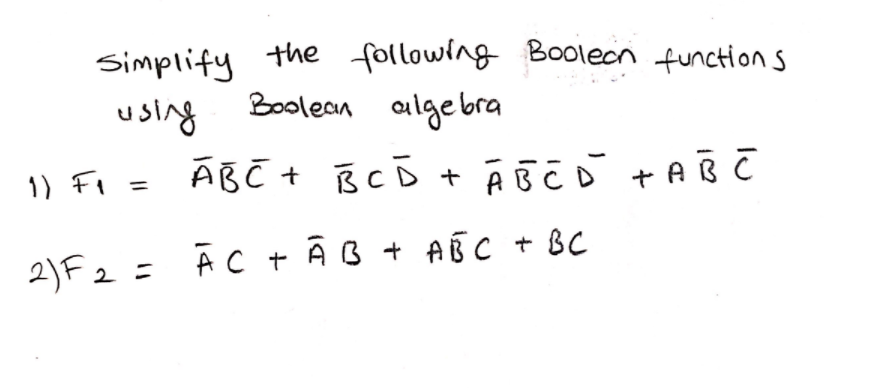 Simplify the following Boolean functions
using Boolean algebra
1) F1 = A̅B̅C̅ + B̅CD̅ + A̅B̅C̅D̅ + AB̅C̅
2) F2 = A̅C + A̅B + AB̅C + BC